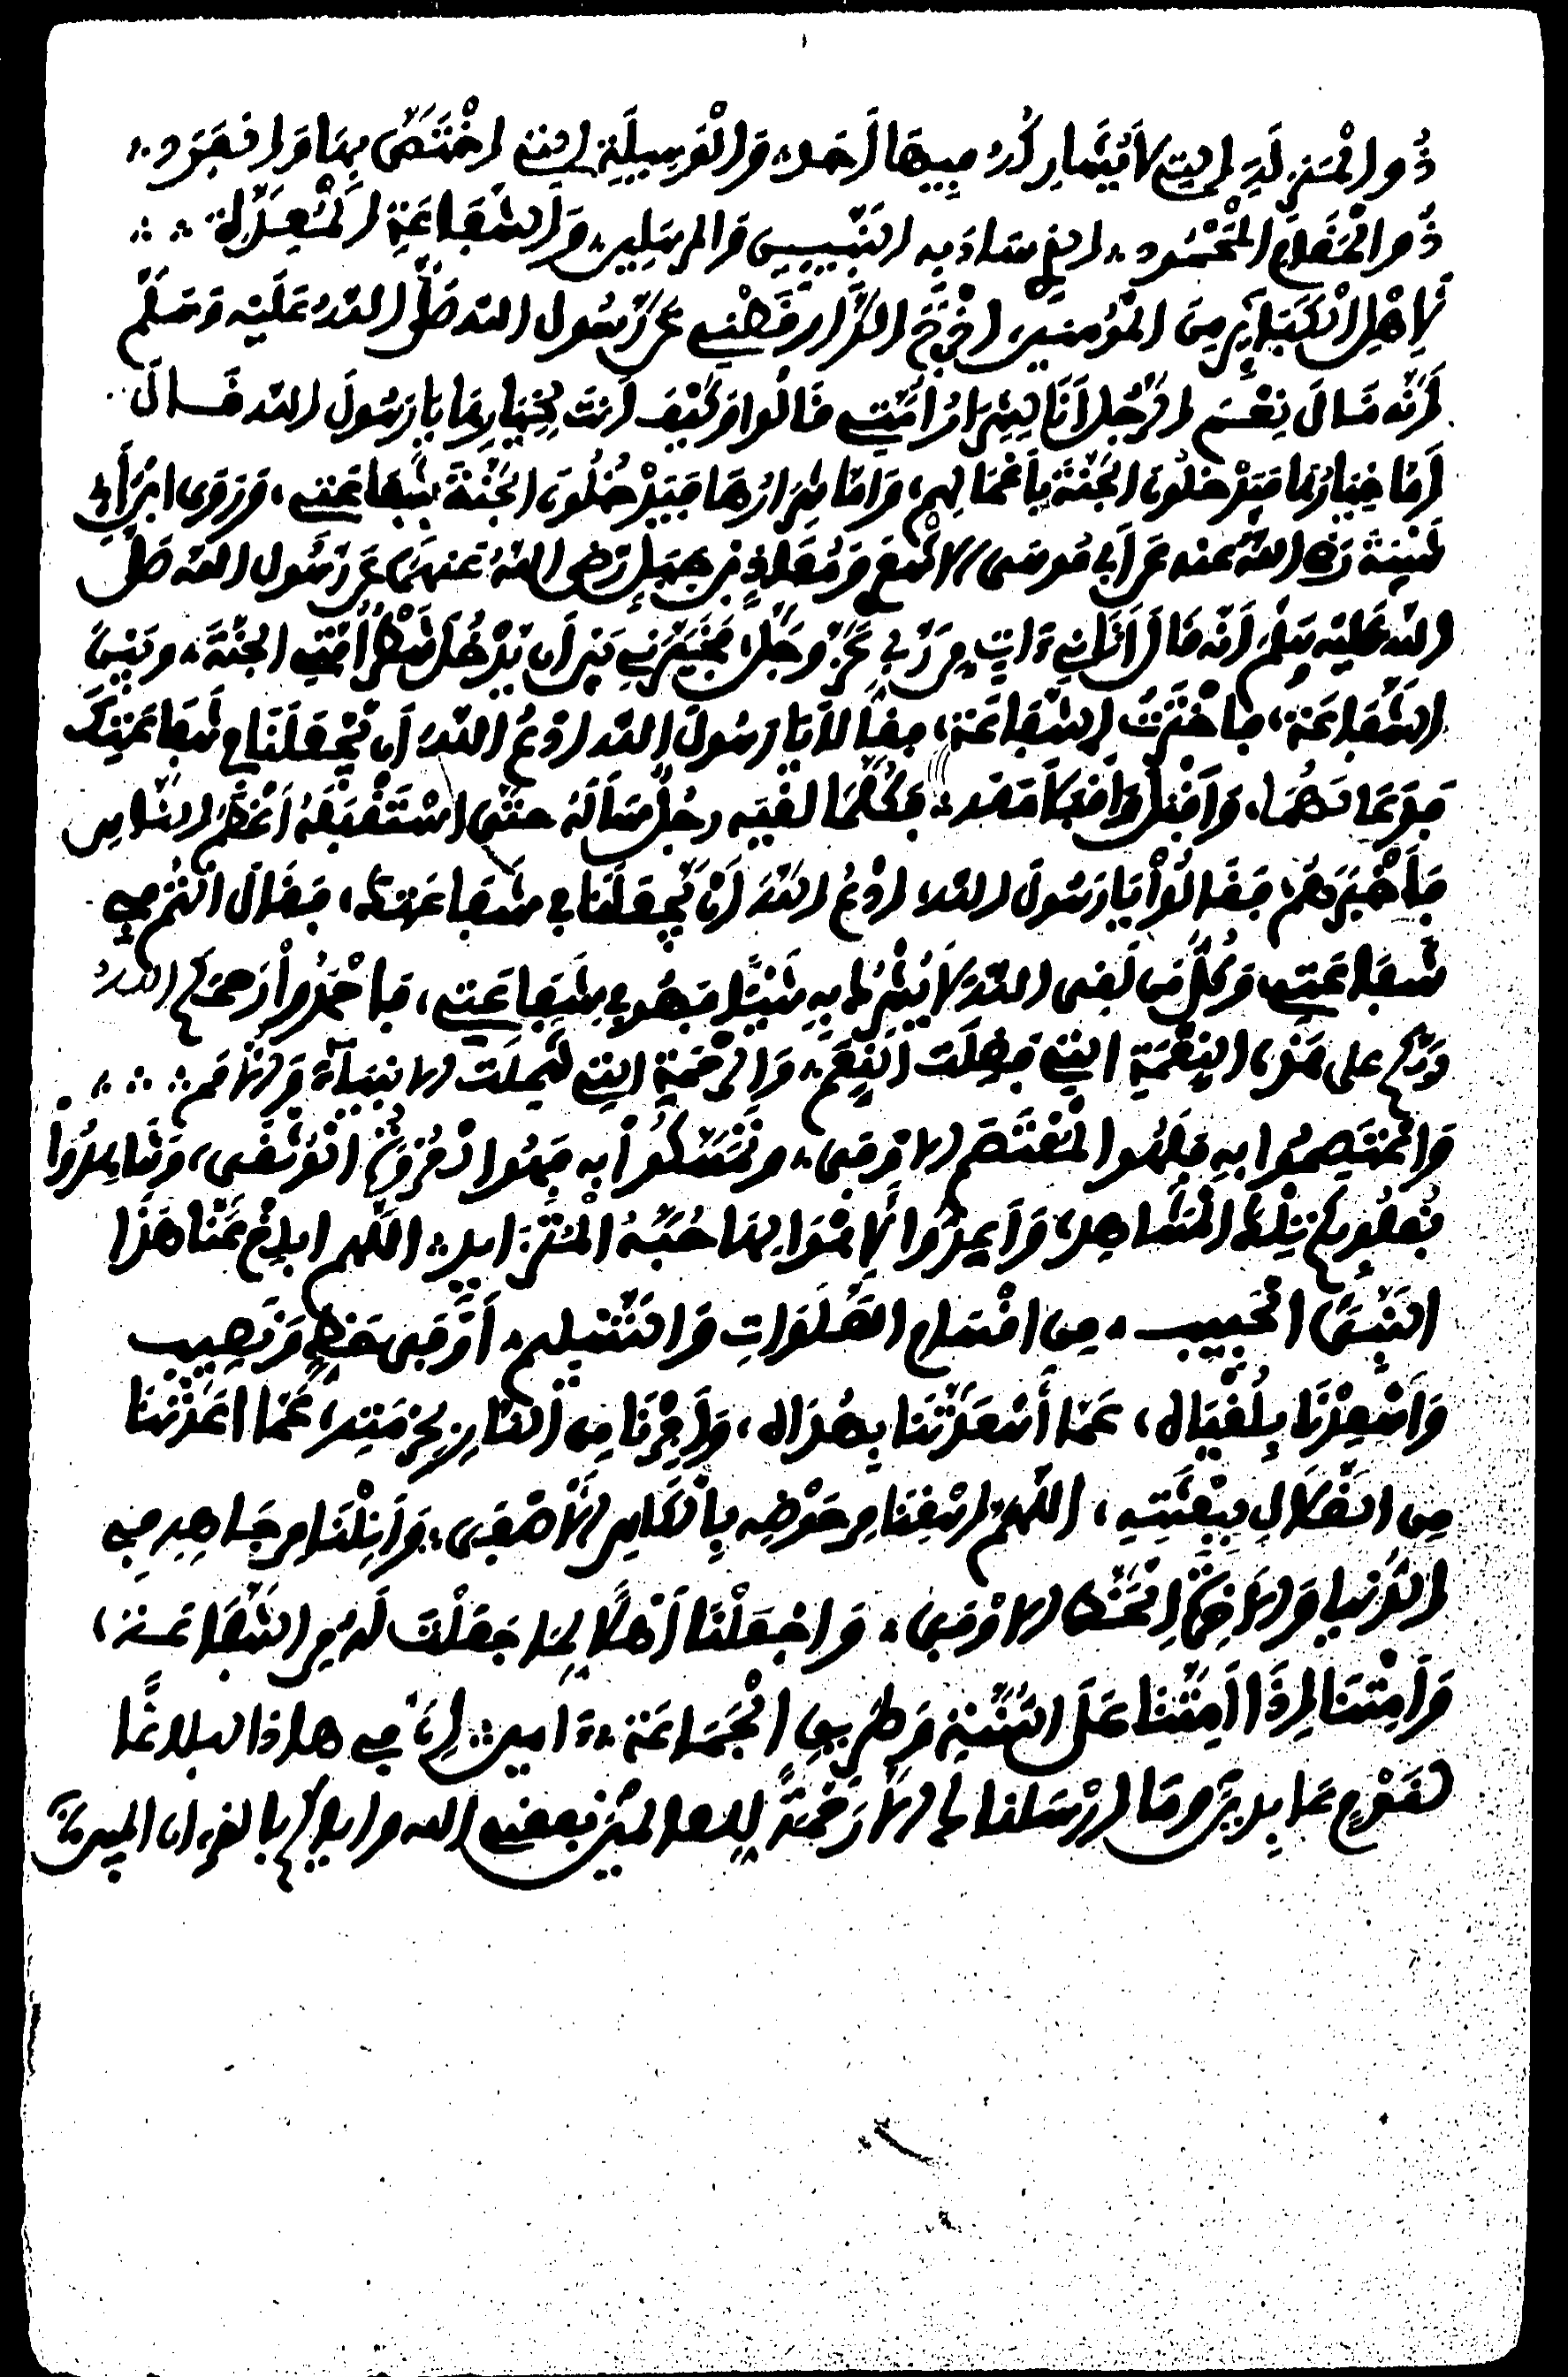 ذُو الْمَنْزِلَةِ التِي لَا يُشَارِكُهُ فِيهَا أَحَد، وَالْوَسِيلَةِ التي اخْتَصَّ بِهَا وَانفَرَد،
ذُو الْمَقَامِ الْمَحْمُود، الذي سَادَ بِهِ النَّبِيِّينَ وَالمرسَلِين، وَالشَّفَاعَةِ الْمُعَدَّة
لِأَهْلِ الْكَبَائِرِ مِنَ الْمُؤْمِنِين، اخْرَجَ الدَّارقُطْنِي عَن رَّسُول الله صَلَّى اللهُ عَلَيْهِ وَسَلَّمَ
أَنَّه قَالَ نِعْمَ الرَّجُلُ أَنَا لِشِرَارِ أُمَّتِي قَالُوا وَكَيْفَ أَنتَ لِخِيَارِهَا يَا رَسُولَ الله قَالَ
أَمَّا خِيَارُهَا فَيَدْخُلُونَ الْجَنَّةَ بِأَعْمَالِهِم، وَأَمَّا شِرَارُهَا فَيَدْخُلُونَ الْجَنَّةَ بِشَفَاعَتِي، وَرَوَى ابْنُ أَبِي
شَيْبَةَ رَضِيَ اللهُ عنه عَن أَبِي مُوسَى الأَشْعَرِي وَمُعَاذِ بْنِ جَبَلٍ رَضِيَ اللهُ عَنهُمَا عَن رَّسُولِ الله صَلَّى
الله عَلَيْه وَسَلَّمَ أَنَّه قَالَ أَتَانِي ءَاتٍ مِن رَّبِّي عَزَّ وَجَلَّ، فَخَيَّرَنِي بَيْنَ أَن يَدْخُلَ شَطْرُ أُمَّتِي الجَنَّةَ، وبَيْنَ
الشَّفَاعَة، فَاخْتَرْتُ الشَّفَاعَة، فقالاَ يَا رَسُولَ الله ادْعُ اللهَ أَن يَّجْعَلَنَا فِي شَفَاعَتِكَ
فَدَعَا لَهُمَا، وَأَقْبَلَ وَأَقْبَلَا مَعَه، فَكُلَّمَا لَقِيَه رَجُلٌ سَأَلَهُ حَتَّى اسْتَقْبَلَهُ أَعْظَمُ النَّاسِ
فَأَخْبَرَهُمْ فَقَالُوا يَا رَسُولَ الله، ادْعُ اللهَ أَنْ يَّجْعَلَنَا فِي شَفَاعَتِكَ، فَقَالَ أَنْتُمْ فِي
شَفَاعَتِي، وَكُلُّ مَن لَقِيَ اللهَ لَا يُشْرِكُ بِهِ شَيْئًا فَهُوَ فِي شَفَاعَتِي، فَاحْمَدُوا رَحِمَكُم اللهُ
رَبَّكُم على هَذِهِ النِّعْمَةِ التِي فَضَلَتِ النِّعَم، وَالرَّحْمَةِ التِي شَمِلَت الأَنبِيَاءَ وَالأُمَم
وَاعْتَصِمُوا بِهِ فَهُوَ الْمُعْتَصَم الأَوْقَى، وتَمَسَّكُوا بِهِ فَهُوَ الْعُرْوَةُ الْوُثْقَى، وَشَاهِدُوا
بِقُلُوبِكُم تِلْكَ الْمَشَاهِدَ، وَأَعِدُّوا لِأَهْوَالِهَا حُبَّهُ الْمُتَزَايِدَ، اللَّهُم ابلِغْ عَنَّا هَذَا
النَّبِيَّ الْحَبِيبَ، مِن اقْسَامِ الصَّلَوَاتِ وَالتَّسْلِيم، أَوْفَى حَظٍّ وَنَصِيب
وَأَسْعِدْنَا بِلُقْيَاه، كَمَا أَسْعَدتَّنَا بِهُدَاه، وَأَجِرْنَا مِنَ النَّارِ بِحُرْمَتِه، كَمَا اعَذتَّنَا
مِن الضَّلَالِ بِبِعْثَتِهِ، اللَّهُمَّ اسْقِنَا مِن حَوْضِهِ بِالْكَأْسِ الأَصْفَى، وَأَنِلْنَا مِن جَاهِهِ فِي
الدُّنْيَا وَالآخِرَةِ الْحَظَّ الأَوْفَى، وَاجْعَلْنَا أَهْلًا لِمَا جَعَلْتَ لَهُ مِن الشَّفَاعَة،
وَأَمِتْنَا إِذَا أَمَتَّنَا عَلَى السُّنَّةِ وَطَرِيقِ الْجَمَاعَة، ءَامِين، إِنَّ فِي هَذَا لبلاغًا
لقَوْمٍ عَابِدِينَ وَمَا أَرْسَلْنَاكَ إِلَّا رَحْمَةً لِلْعَالَمِينَ نفعني الله وإياكم بالقرءان المبين